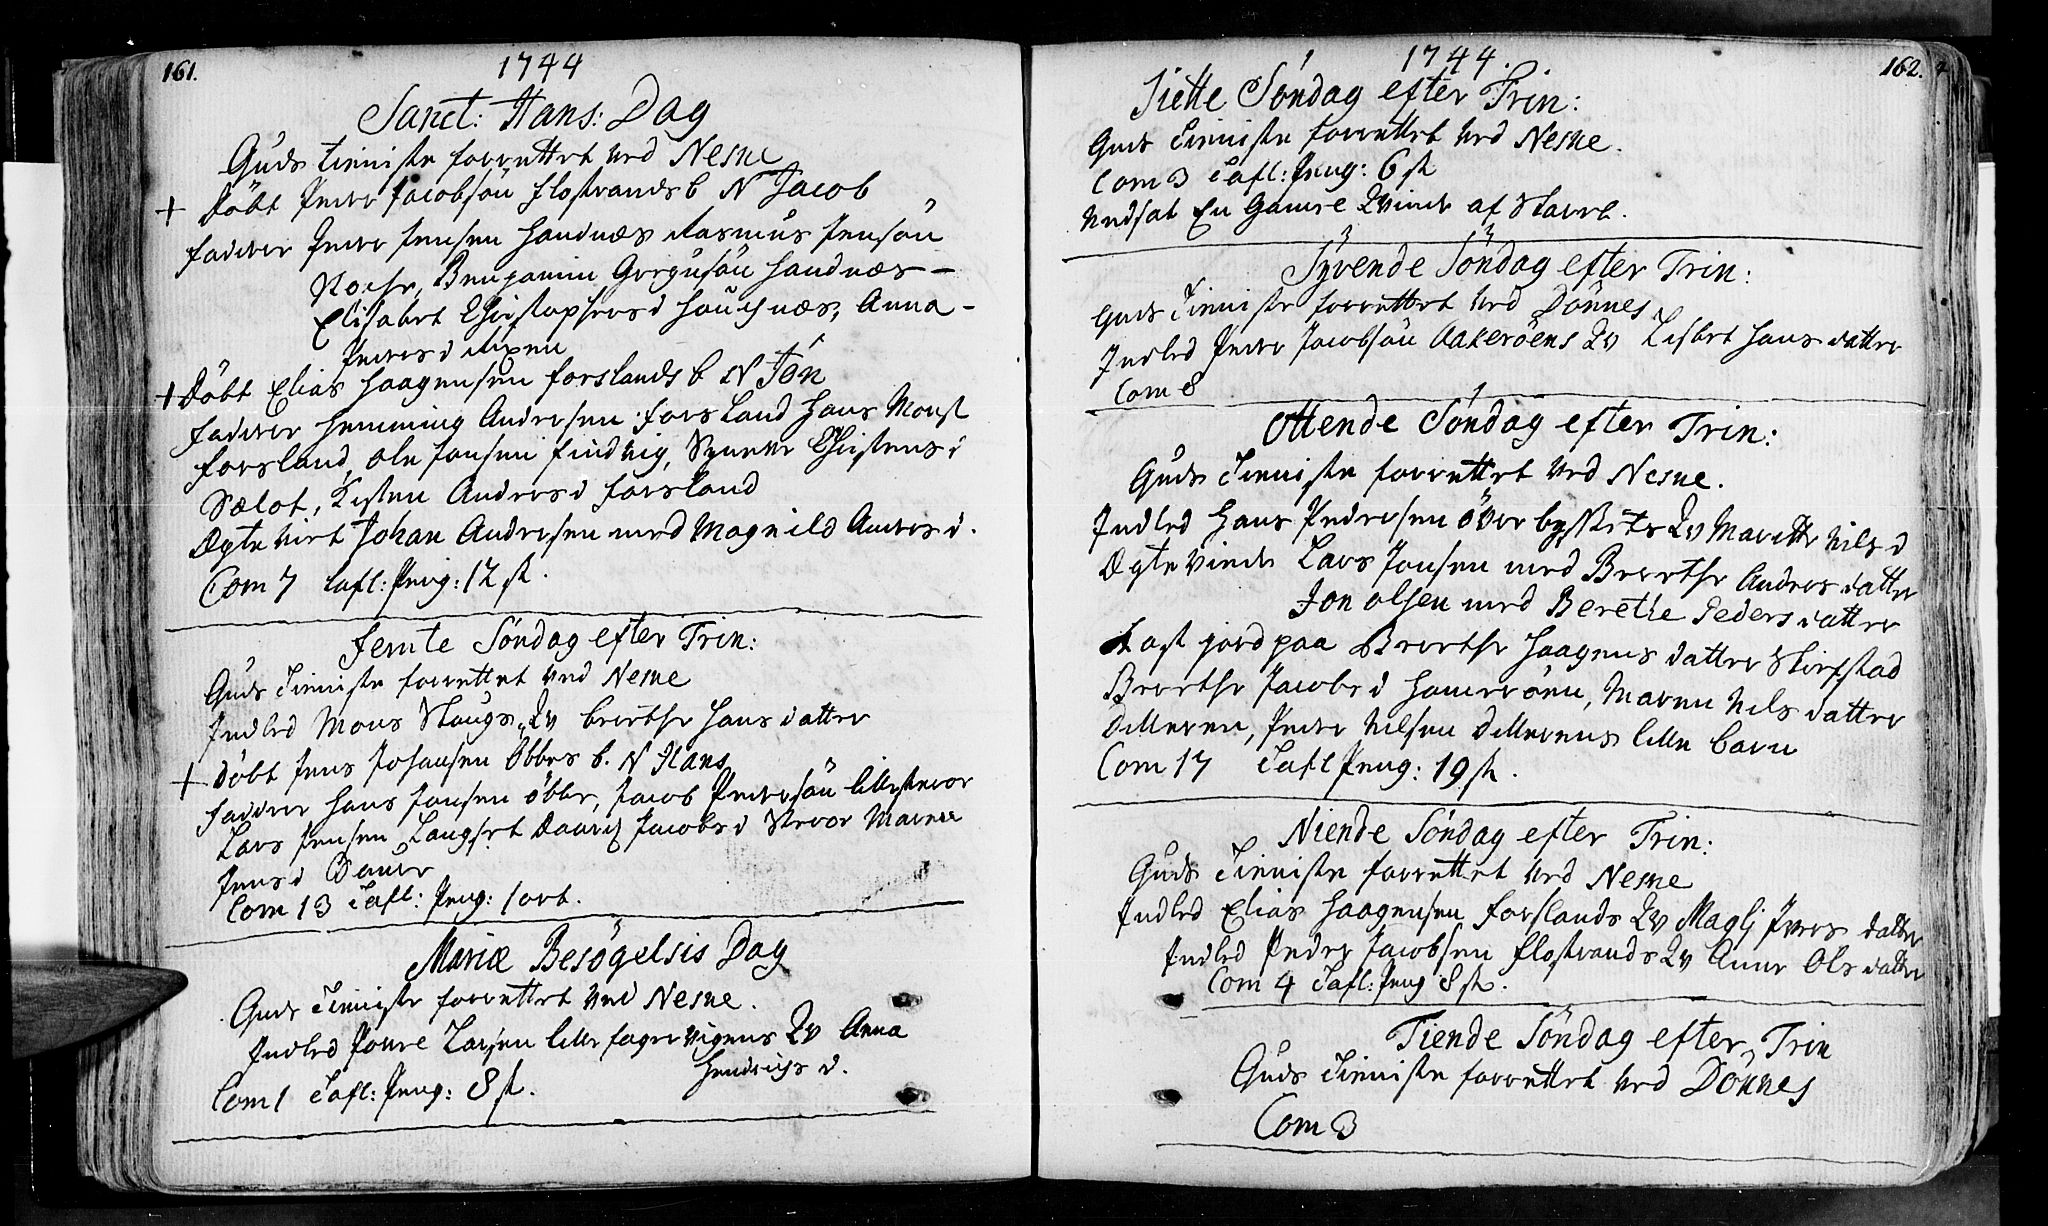 161.
1744
Sanct: Hans: Dag
Guds tieniste forrettet ved Nesne
+ Döbt Peder Jacobsön flostrands b N Jacob
fadder Peder Jensen handnæs Rasmus Jensön
Benjamin handnæs -
Elisabet Christophers d haugnæs, Anna -
Peders d
+ Döbt Elias haagensen forslands b N Jón
fadder hemming Andersen forsland hans Mons
forsland, ole Jonsen findvig, Christens d
Sælot, Kisten Anders d forsland
Ægte viet Johan Andersen med Magnild d.
Com 7 tafl: Peng: 12 sk.
femte Söndag efter Trin:
Guds Tieniste forrettet ved Nesne
Indled Mons Qv berethe hans datter
+ Döbt Jens Johansen Öbbes b. N Hans
fadder hans Jonsen öbbe, Jacob Pedersön
Lars Jensen Langset Jacobs d Maren
Jens d
Com 13 Tafl: Peng: 1 ort.
Mariæ Besögelsis Dag
Guds Tieniste forrettet ved Nesne.
Indled Larsen lille fagervigens Qv Anna
Hendrichs d.
Com 1 Tafl: Peng: 8 sk.
162.
1744.
Siette Söndag efter Trin:
Guds Tieniste forrettet ved Nesne.
Com 3 Tafl: Peng: 6 sk
Undsat En Gamel Qvinde af
Syvende Söndag efter Trin:
Guds Tieniste forrettet ved Dönnes
Indled Peder Jacobsön Aakeröens Qv Lisbet hans datter
Com 8
Ottende Söndag efter Trin:
Guds Tieniste forrettet ved Nesne.
Indled hans Pedersen Qv Marette Nils d
Ægte viede Lars Jonsen med Berethe Anders datter
Jon olsen med Berethe Peders datter
Kast jord paa Berethe haagens datter
Berethe Jacobs d hamerönn, Maren Nils datter
Peder Nilsen lille barn
Com 17 Tafl Peng: 19 sk.
Niende Söndag efter Trin:
Guds Tieniste forrettet ved Nesne
Indled Elias haagensen forslands Qv Magli datter
Indled Peder Jacobsen flostrands Qv Anne Ols datter
Com 4 Tafl: Peng 8 sk.
Tiende Söndag efter Trin
Guds Tieniste forrettet ved Dönnes
Com 3